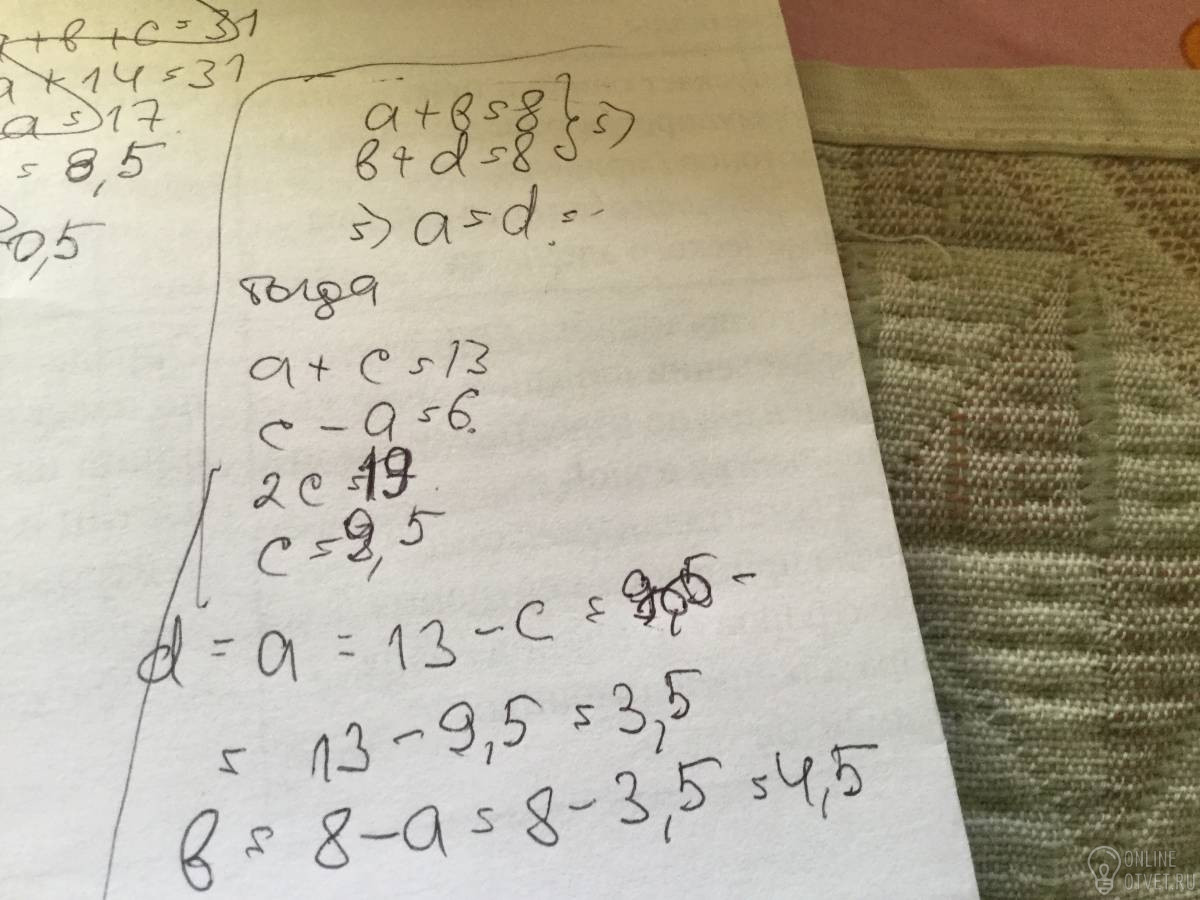 + в + с = 31
а + 14 = 31
а = 17
= 8,5
0,5
а + в = 8 } =>
в + d = 8
=> а = d =
тогда
а + с = 13
с - а = 6
2с = 19
с = 9,5
d = а = 13 - с =
= 13 - 9,5 = 3,5
в = 8 - а = 8 - 3,5 = 4,5
ONLINE
OTVET.RU